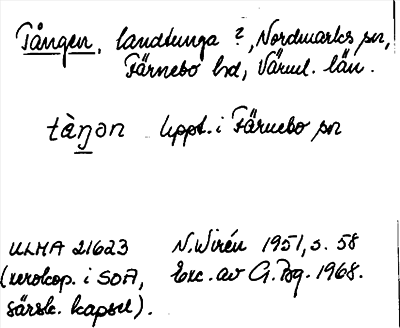 Tången, landtunga ?, Nordmarks sn,
Färnebo hd, Värml. län.
tàŋən Uppt. i Färnebo sn
ULMA 21623 N. Wirén 1951, s. 58
(xerokop. i SOA, Exc. av G. Bg. 1968.
särsk. kapsel).